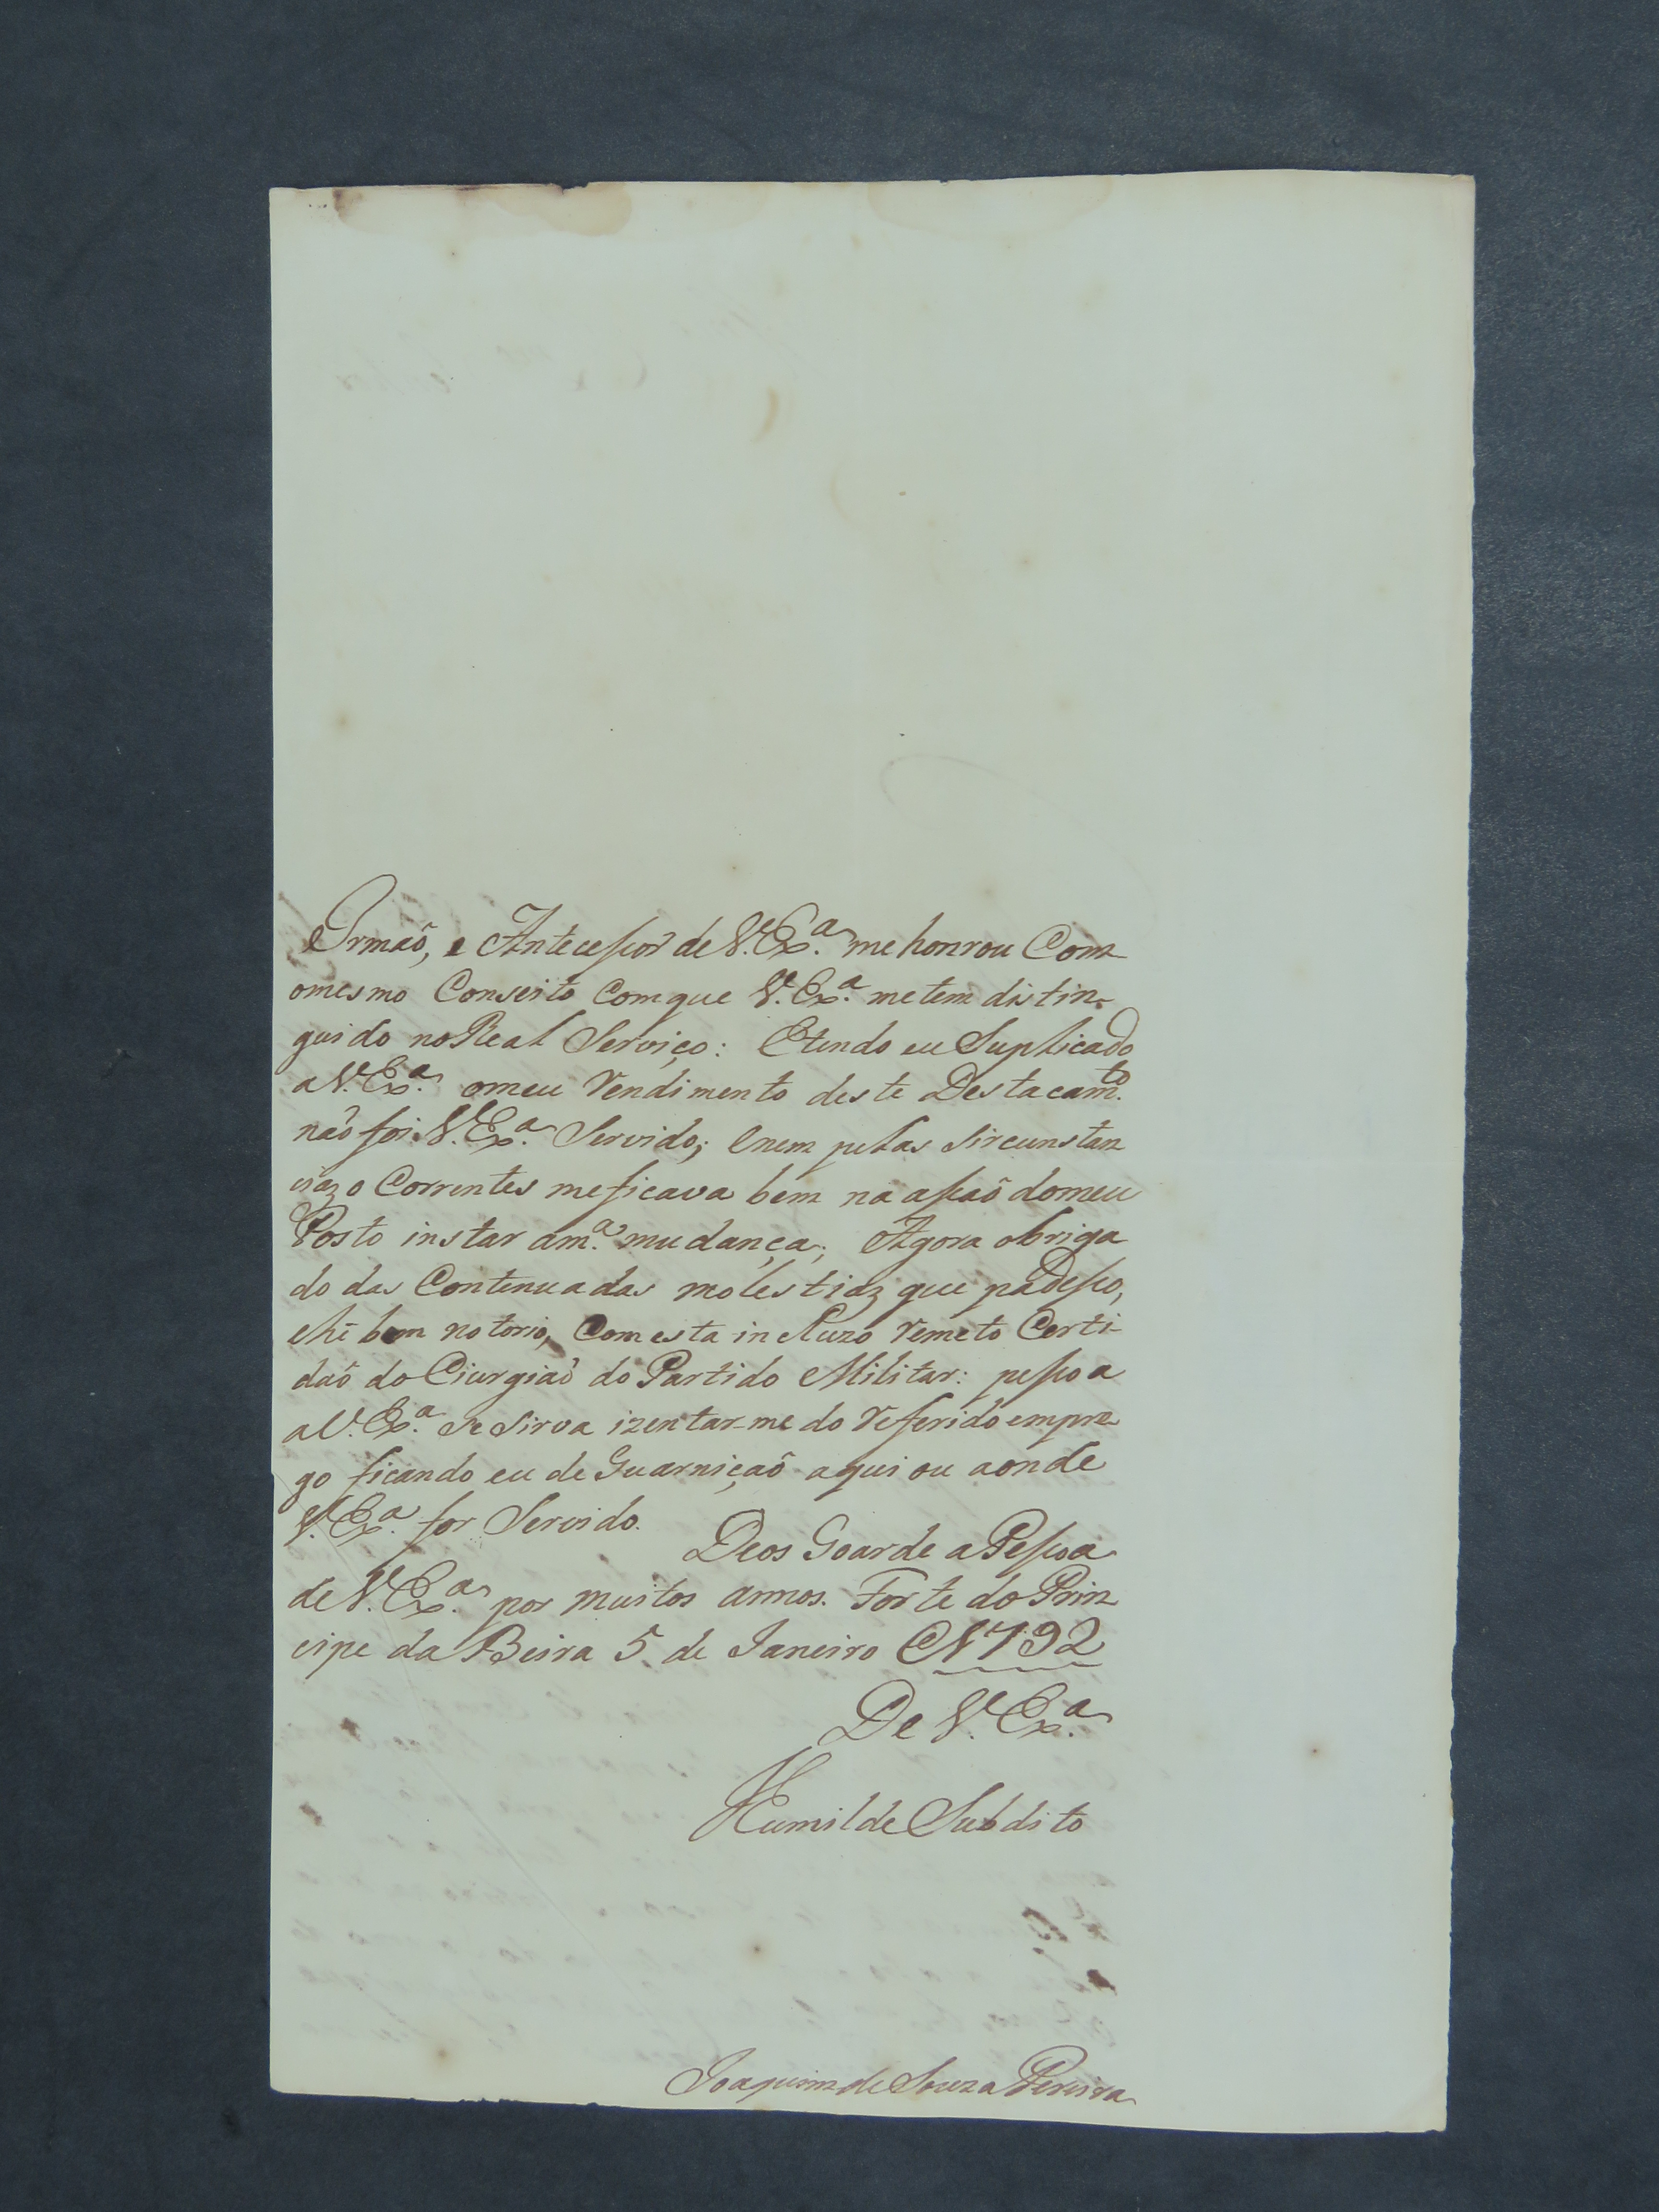 Irmaõ, e Antecessor de V. Ex.ª me honrou Com
omesmo Conseito Com que V. Ex.ª metem distin-
guido no Real Serviço: Etendo eu Suplicado
a V. Ex.ª omeu Rendimento deste Destacam.to
naõ foi V. Ex.ª Servido; Enem pelas Sircunstan
ciaz Correntes meficava bem na assaõ domeu
Posto instar am.ª mudança; Agora obriga
do das Contenuadas molestiaz que padesso,
ehé bem notorio, Com esta incluzo Remeto Certi-
daõ do Ciurgiaõ do Partido Militar: pesso a
a V. Ex.ª se sirva izentar-me do Referido empre
go ficando eu de Guarniçaõ aqui ou aonde
V. Ex.ª for Servido.
Deos Goarde a Pessoa
de V. Ex.ª por muitos annos. Forte do Prin
cipe da Beira 5 de Janeiro 1792
De V. Ex.ª
Humilde Subdito
Joaquim de Souza Pereira